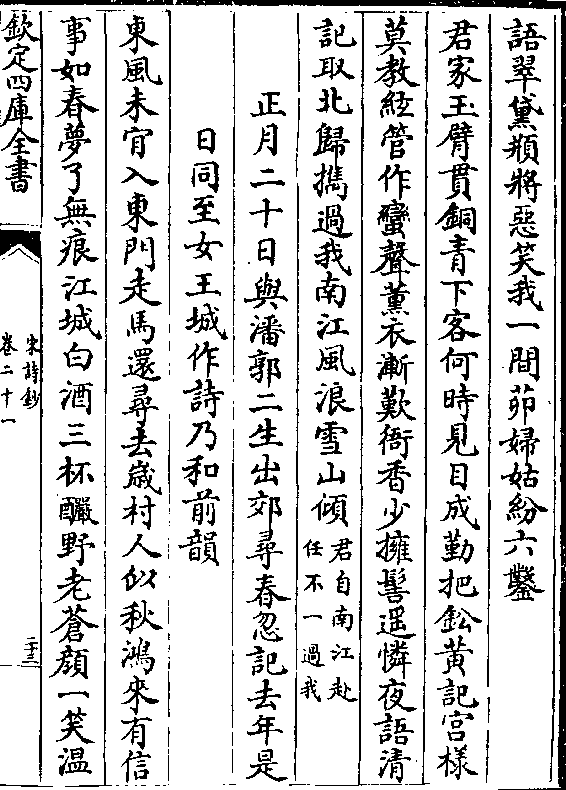 語翠黛頻將惡笑我一間茆婦姑紛六鑿
君家玉臂貫銅青下客何時見目成勤把鈆黃記宮樣
莫教絃管作蠻聲薰衣漸歎衙香少擁髻遥憐夜語清
記取北歸攜過我南江風浪雪山傾君自南江赴
任不一過我
正月二十日與潘郭二生出郊尋春忽記去年是
日同至女王城作詩乃和前韻
東風未肎入東門走馬還尋去歲村人似秋鴻來有信
事如春夢了無痕江城白酒三杯釅野老蒼顔一笑溫
欽定四庫全書
宋詩鈔
卷二十一
二十三